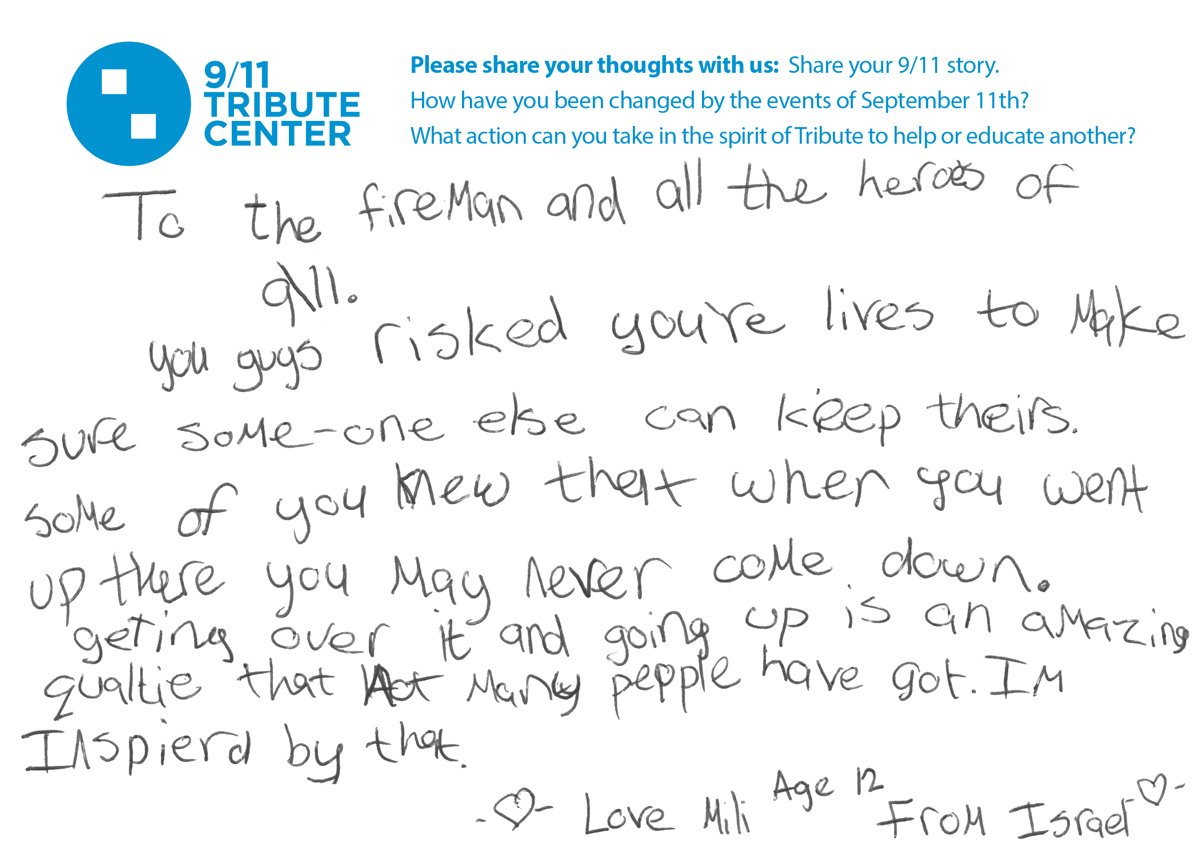 9/11
TRIBUTE
CENTER
Please share your thoughts with us: Share your 9/11 story.
How have you been changed by the events of September 11th?
What action can you take in the spirit of Tribute to help or educate another?
To the fireman and all the heroes of
9\11.
you guys risked you're lives to make
sure some-one else can keep theirs.
some of you knew that when you went
up there you may never come down.
geting over it and going up is an amazing
qualtie that not many people have got. I'm
Inspierd by that.
-♡- Love Mili Age 12 From Israel -♡-